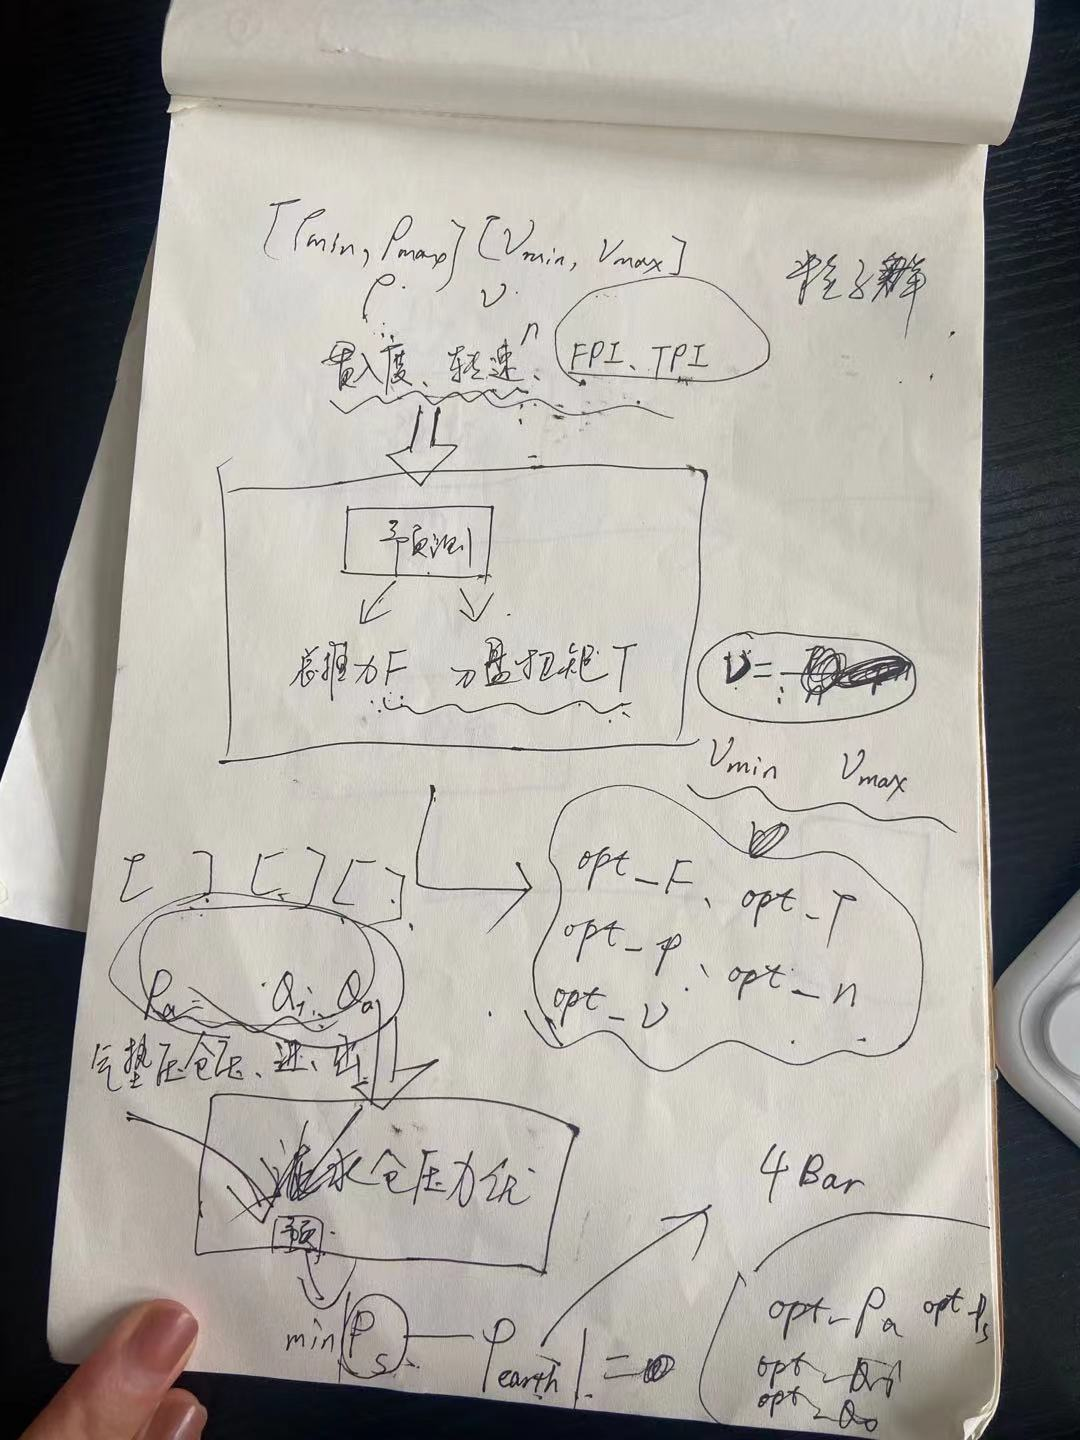 [Pmin, Pmax] [νmin, νmax]
粒子群
P ν n
贯入度、转速、 FPI、TPI
预测
总推力F 刀盘扭矩T
ν=
νmin νmax
[ ] [ ] [ ]
opt_F、 opt_T
opt_P、 opt_n
opt_ν
Pa= Qi、Qo
气垫压仓压、进、出
水仓压力
预
4 Bar
min|Ps — Pearth| =
opt_Pa opt_Ps
opt_Qi
opt_Qo